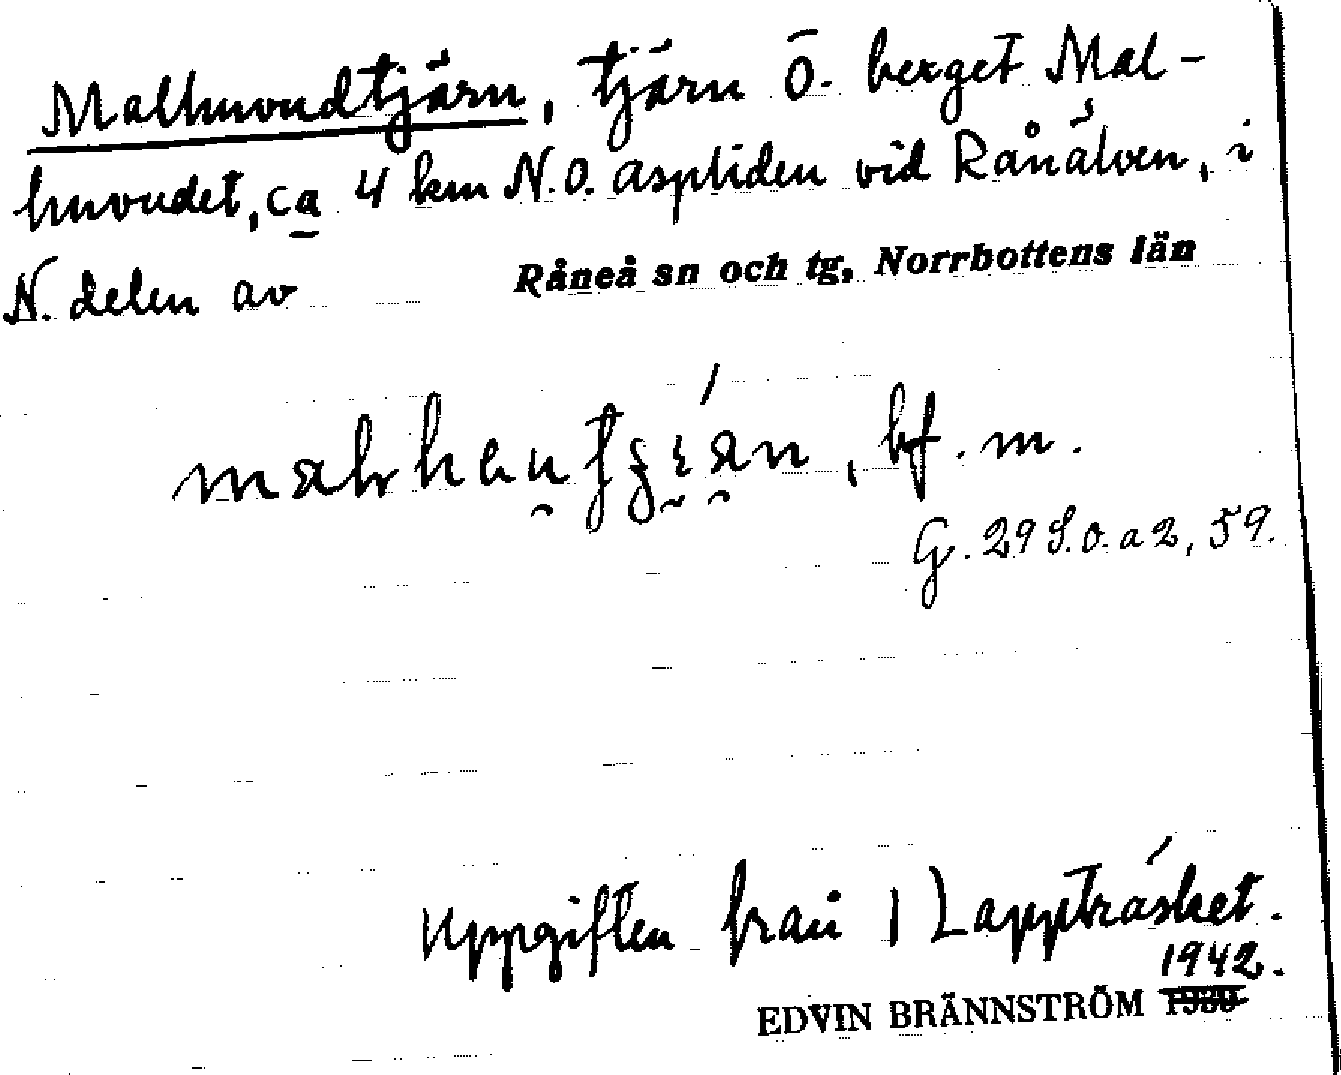 Malhuvudtjärn, tjärn Ö. berget Mal-
huvudet, ca 4 km N.O. Aspliden vid Råneälven, i
N. delen av Råneå sn och tg, Norrbottens län
bf. m.
G. 29 S.o. a 2, 59.
Uppgiften från 1 Lappträsket.
1942.
EDVIN BRÄNNSTRÖM 1930